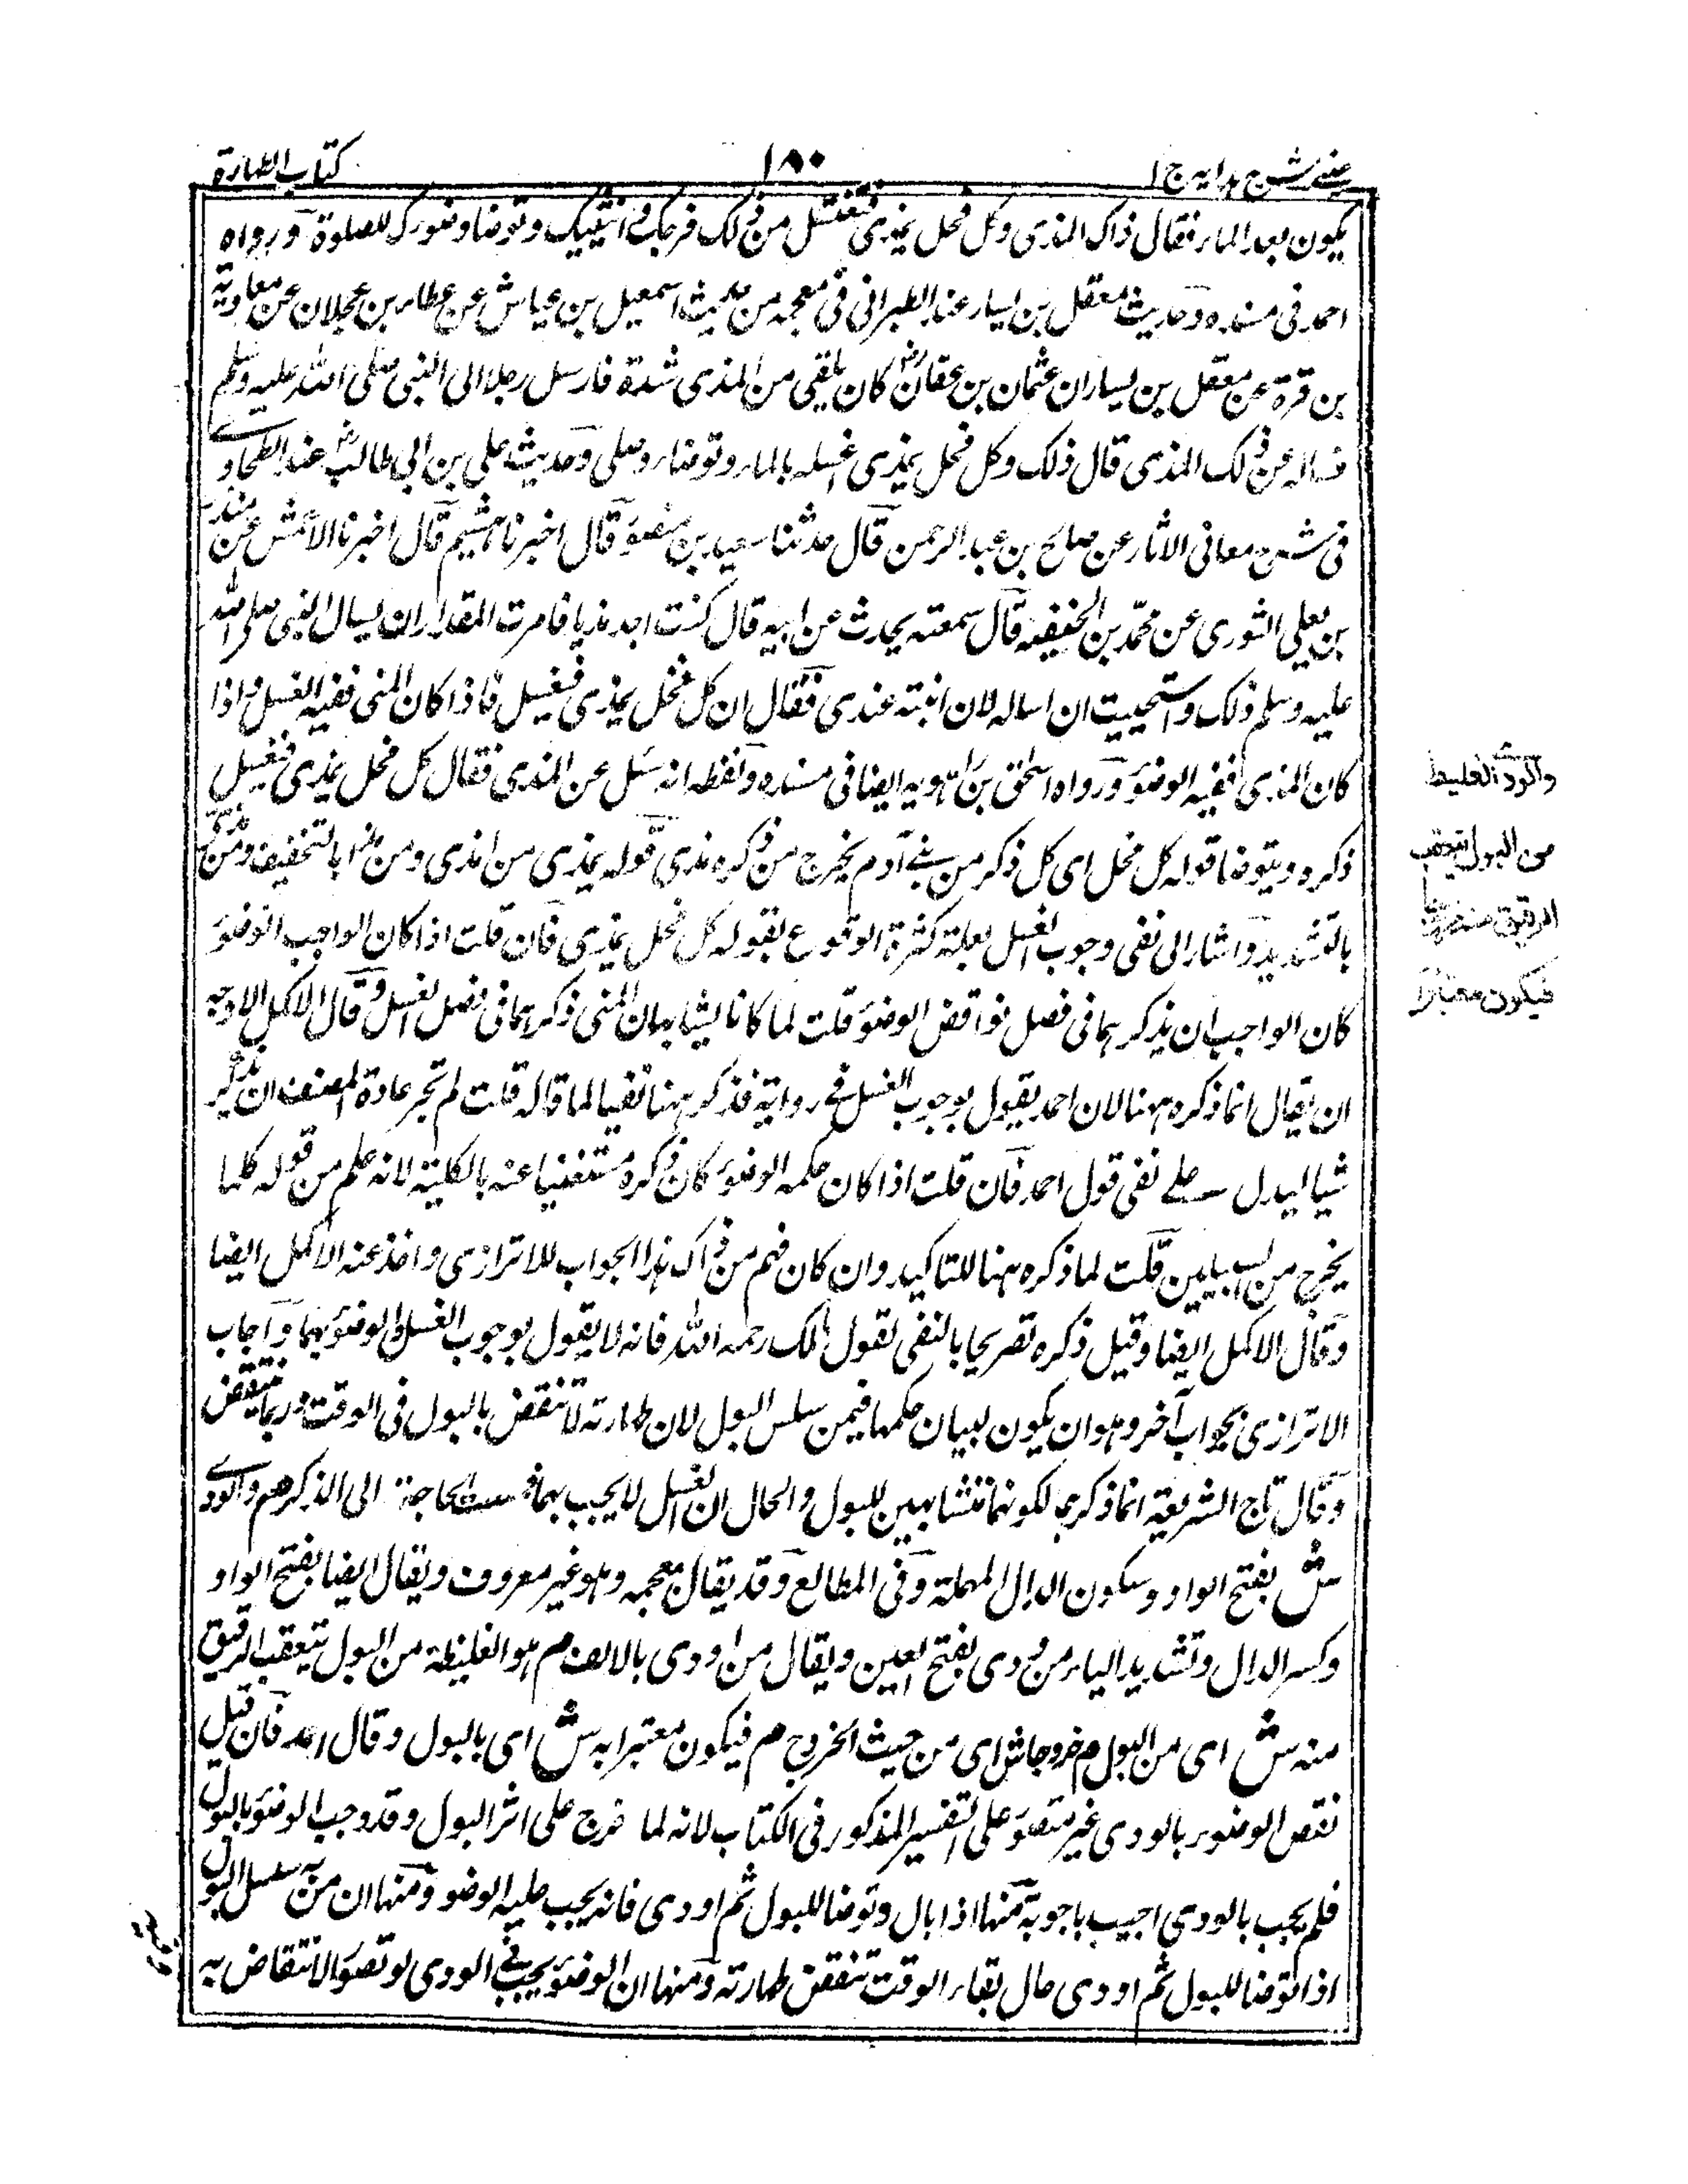 عينى شرح هدايه ج ١
١٨٠
كتاب الطهارة
يكون بعد الماء فقال ذاك المذى وكل فحل يمذى فتغسل من ذلك فرجك و انثييك وتوضا وضوءك للصلوة ورواه
احمد فى مسنده وحديث معقل بن يسار عند الطبرانى فى معجمه من حديث اسمعيل بن عياش عن عطاء بن عجلان عن معاوية
بن قرة عن معقل بن يسار ان عثمان بن عفان رض كان يلقى من المذى شدة فارسل رجلا الى النبى صلى الله عليه وسلم
فساله عن ذلك المذى قال ذلك وكل فحل يمذى غسله بالماء وتوضاء وصلى وحديث على بن ابى طالب رض عند الطحاوى
فى شرح معانى الاثار عن صالح بن عبد الرحمن قال حدثنا سعيد بن منصور قال اخبرنا هشيم قال اخبرنا الاعمش عن منذر
بن يعلى الثورى عن محمد بن الحنفية قال سمعته يحدث عن ابيه قال كنت اجد مذيا فامرت المقداد ان يسال النبى صلى الله
عليه وسلم ذلك واستحييت ان اساله لان ابنته عندى فقال ان كل فحل يمذى فيغسل فاذا كان المنى ففيه الغسل واذا
كان المذى ففيه الوضوء ورواه اسحق بن راهويه ايضا فى مسنده ولفظه انه سئل عن المذى فقال كل فحل يمذى فيغسل
ذكره ويتوضا قوله كل فحل اى كل ذكر من بنى آدم يخرج من ذكره مذى قوله يمذى من امذى ومن مذا بالتخفيف ومن مذى
بالتشديد واشار الى نفى وجوب الغسل بعلة كثرة الوقوع بقوله كل فحل يمذى فان قلت اذا كان الواجب الوضوء
كان الواجب ان يذكرهما فى فصل نواقض الوضوء قلت لما كانا يشابهان المنى ذكرهما فى فصل الغسل وقال الاكمل الاوجه
ان يقال انما ذكره ههنا لان احمد يقول بوجوب الغسل فى رواية فذكر ههنا نفيا لما قاله قلت لم تجر عادة المصنف ان يذكر
شيا ليدل على نفى قول احمد فان قلت اذا كان حكمه الوضوء كان ذكره مستغنيا عنه بالكلية لانه علم من قوله كلما
يخرج من السبيلين قلت لما ذكره ههنا للتاكيد وان كان فهم من ذاك هذا الجواب للاترازى واخذ عنه الاكمل ايضا
وقال الاكمل ايضا وقيل ذكره تصريحا بالنفى لقول مالك رحمه الله فانه لا يقول بوجوب الغسل والوضوء بهما واجاب
الاترازى بجواب آخر وهو ان يكون لبيان حكمها فيمن سلس البول لان طهارته لا تنقض بالبول فى الوقت وربما ينتقض
وقال تاج الشريعة انما ذكرهما لكونهما متشابهين للبول والحال ان الغسل لا يجب بهما فمست الحاجة الى الذكر هم والودى
ش بفتح الواو وسكون الدال المهملة وفى المطالع وقد يقال بمعجمه وهو غير معروف ويقال ايضا بفتح الواو
وكسر الدال وتشديد الياء من ودى بفتح العين ويقال من اودى بالالف م هو الغليظة من البول يتعقب الرقيق
منه ش اى من البول م خروجا ش اى من حيث الخروج م فيكون معتبرا به ش اى بالبول وقال احمد فان قيل
نقض الوضوء بالودى غير متصور على التفسير المذكور فى الكتاب لانه لما خرج على اثر البول وقد وجب الوضوء بالبول
فلم يجب بالودى اجيب باجوبة منها اذا بال وتوضا للبول ثم اودى فانه يجب عليه الوضو ومنها ان من به سلس البول
اذا توضا للبول ثم اودى حال بقاء الوقت تنقض طهارته ومنها ان الوضوء يجب فى الودى لو تصور الانتقاض به
والودى الغليظ
من البول يتعقب
الرقيق منه خروجا
فيكون معتبرا